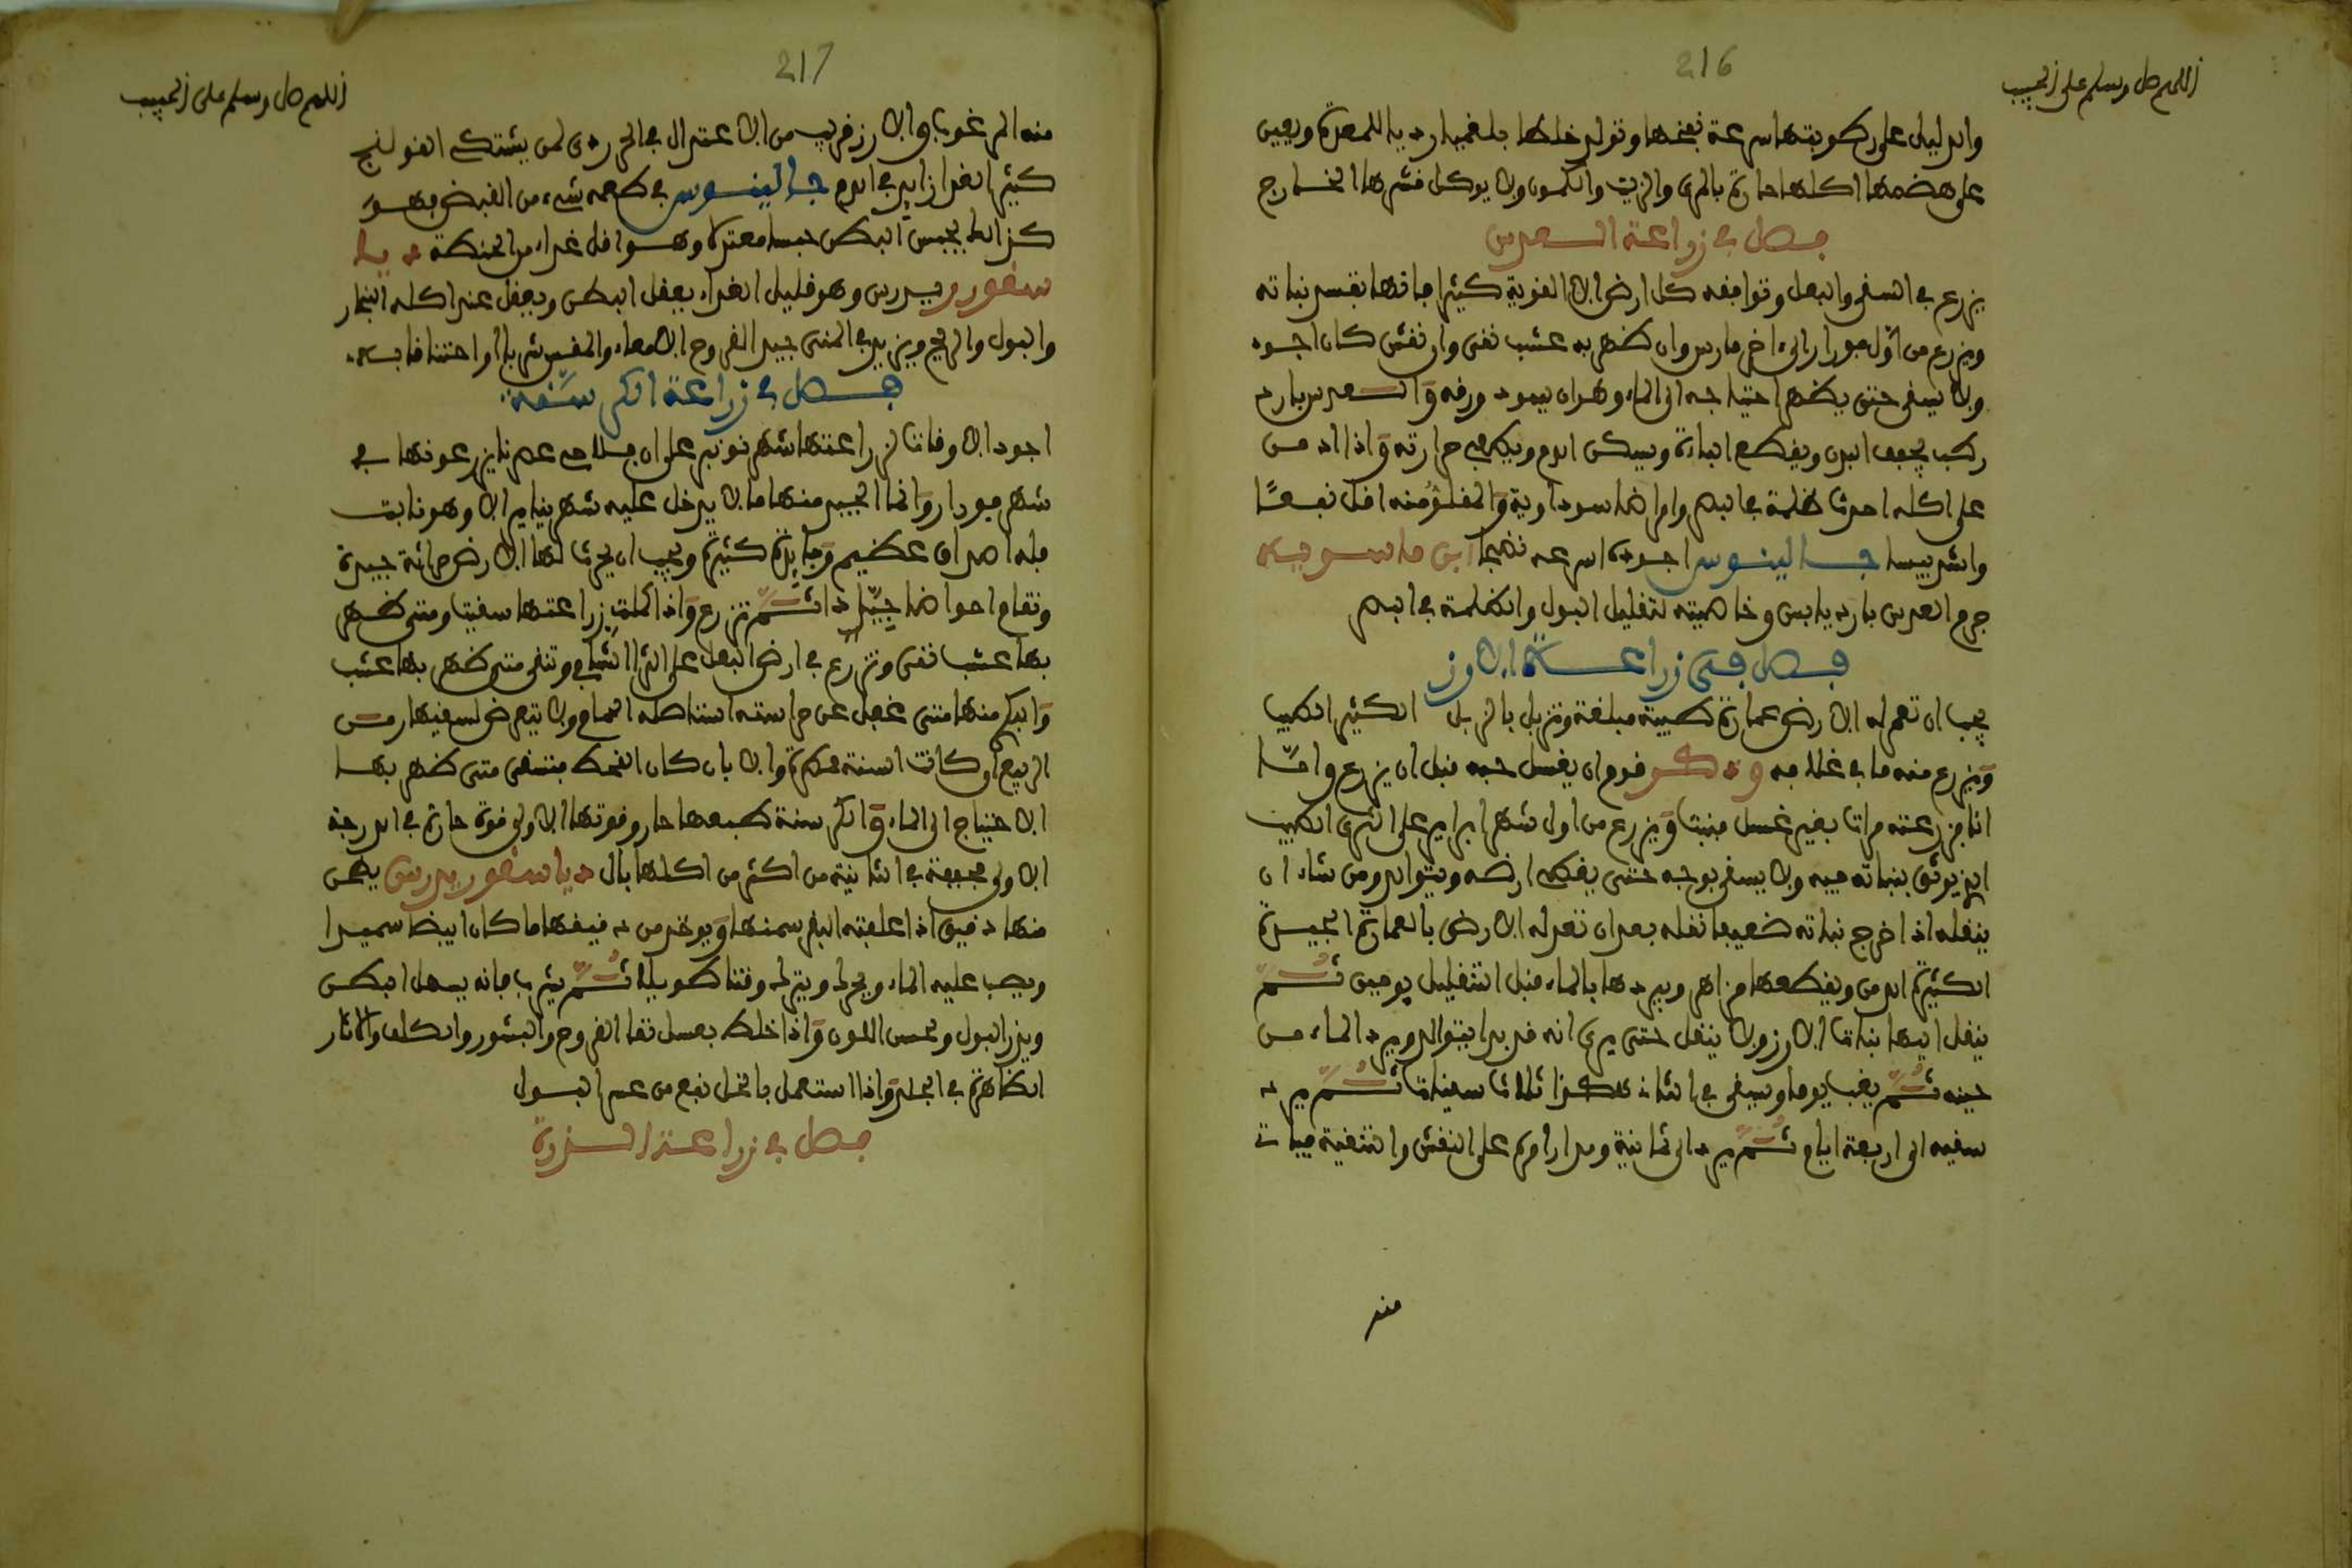 216
اللهم صل وسلم على الحبيب
والدليل على رطوبتها سرعة نفخها وتولد خلطا بلغميا رديا للمعدة ويعين
على هضمها اكلها حارة بالمري والزيت والكمون ولا يوكل قشرها الخارج
فصل في زراعة العدس
يزرع في السقي والبعل وتوافقه كل ارض الا القوية كثيرا فانها تفسد نباته
ويزرع من اول فورار الى اخر مارس وان ظهر به عشب نقي وان نقش كان اجود
ولا يسقى حتى يظهر احتياجه الى الماء وهو ان يسود ورقه والعدس بارد
رطب يجفف البدن ويقطع الباءة ويسكن الدم ويطفي حرارته واذا ادمن
على اكله احدث ظلمة في البصر وامراضا سوداوية والمقلو منه اقل نفعا
واشد يبسا جالينوس اجوده اسرعه نضجا ابن ماسويه
جرم العدس بارد يابس وخاصيته لتقليل البول والظلمة في البصر
فصل في زراعة الارز
يجب ان تعمر له الارض عمارة طيبة مبلغة وتزبل بالزبل الكثير الطيب
ويزرع منه ما في غلافه وذكر قوم ان يغسل حبه قبل ان يزرع واما
انا فزرعته مرات بغير غسل فنبت ويزرع من اول شهر ابرير على الثرى الطيب
الذي يوثق بنباته فيه ولا يسقى بوجه حتى يغطي ارضه ويتوالد ومن شاء ان
ينقله اذا خرج نباته ضعيفا نقله بعد ان تعد له الارض بالعمارة الجيدة
الكثيرة الدمن ويقطعها مزاهر ويبردها بالماء قبل التنقيل يومين ثم
ينقل اليها نبات الارز ولا ينقل حتى يرى انه قد بدا يتوالد ويرد الماء من
حينه ثم يغب يوما ويسقى في الثاني هكذا ثلاث سقيات ثم يرد
سقيه الى اربعة ايام ثم يرد الى ثمانية ومدار امره على النقش والتنقية فيات
منه
217
اللهم صل وسلم على الحبيب
منه المرغوب والارز قريب من الاعتدال في الحر ردي لمن يشتكي القولنج
كثير الغذا زايد في الدم جالينوس في طعمه شيء من القبض فهو
كذلك يحبس البطن حبسا معتدلا وهو اقل غذاء من الحنطة ديا
سقوريدوس وهو قليل الغذاء يعقل البطن ويعقل عند اكله البخار
والبول والريح ويزيد في المنى جيد لقروح الامعاء والمغس شربا او احتقانا به
فصل في زراعة الكرسنة
اجود الاوقات لزراعتها شهر نونبر على ان فلاحي عصرنا يزرعونها في
شهر فورار وانما الجيد منها ما لا يدخل عليه شهر يناير الا وهو نابت
فله اصران عظيم وفائدة كثيرة ويجب ان يحرث لها الارض حراثة جيدة
وتقام احواضا جيادا ثم تزرع واذا كملت زراعتها سقيت ومتى ظهر
بها عشب نقي وتزرع في ارض البعل على الثرا الشافي وتنقى متى ظهر بها عشب
والبكر منها متى غفل عن حراسته استاصله الحمام ولا يتعرض لسقيها زمن
الربيع ان كانت السنة ممطرة والا بان كان القحط فتسقى متى ظهر بها
الاحتياج الى الماء والكرسنة طبعها حار وقوتها الاولى قوة حارة في الدرجة
الاولى مجففة في الثانية من اكثر من اكلها بال دياسقوريدوس يطحن
منها دقيق اذا علفته البقر سمنها ويوخذ من دقيقها ما كان ابيضا سميدا
ويصب عليه الماء ويحرك ويترك وقتا طويلا ثم يشرب فانه يسهل البطن
ويدر البول ويحسن اللون واذا خلط بعسل نقا القروح والبثور والكلف والاثار
الظاهرة في الجلد واذا استعمل بالخل نفع من عسر البول
فصل في زراعة الذرة